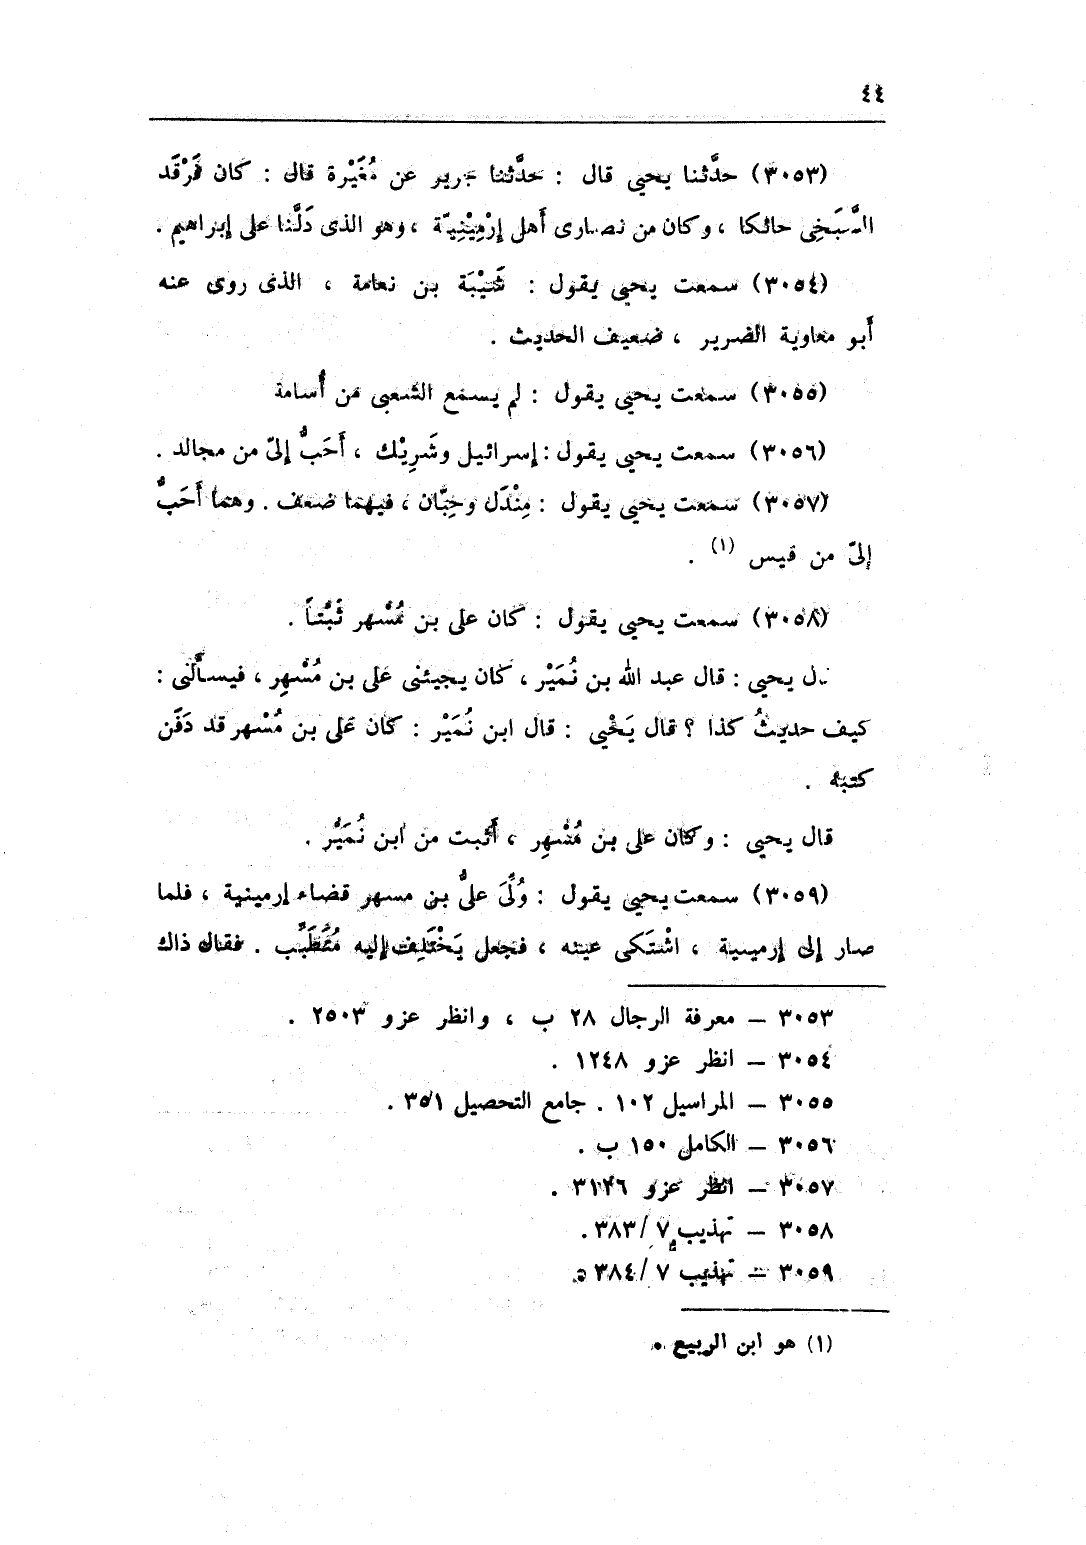 ٤٤
(٣٠٥٣) حدَّثنا يحيى قال : حدَّثنا جرير عن مُغَيْرة قال : كان فَرْقَد
السَّبَخِى حائكا ، وكان من نصارى أهل إرْمِيْنِيّة ، وهو الذى دَلَّنا على إبراهيم .
(٣٠٥٤) سمعت يحيى يقول : شَيْبَة بن نعامة ، الذى روى عنه
أبو معاوية الضرير ، ضعيف الحديث .
(٣٠٥٥) سمعت يحيى يقول : لم يسمع الشعبى من أُسامة
(٣٠٥٦) سمعت يحيى يقول : إسرائيل وشَرِيْك ، أَحَبُّ إلىّ من مجالد .
(٣٠٥٧) سمعت يحيى يقول : مِنْدَل وحِبَّان ، فيهما ضعف . وهما أَحَبُّ
إلىّ من قيس (١) .
(٣٠٥٨) سمعت يحيى يقول : كان على بن مُسْهر ثَبْتاً .
ل يحيى : قال عبد الله بن نُمَيْر ، كان يجيئنى على بن مُسْهِر ، فيسألنى :
كيف حديثُ كذا ؟ قال يَحْيى : قال ابن نُمَيْر : كان عَلى بن مُسْهر قد دَفَن
كتبهُ .
قال يحيى : وكان على بن مُسْهِر ، أَثبت من ابن نُمَيْر .
(٣٠٥٩) سمعت يحيى يقول : وُلِّىَ علىُّ بن مسهر قضاء إرمينية ، فلما
صار إلى إرمينية ، اشْتَكى عينه ، فجعل يَخْتَلِف إليه مُتَطَبِّب . فقال ذاك
٣٠٥٣ – معرفة الرجال ٢٨ ب ، وانظر عزو ٢٥٠٣ .
٣٠٥٤ – انظر عزو ١٢٤٨ .
٣٠٥٥ – المراسيل ١٠٢ . جامع التحصيل ٣٥١ .
٣٠٥٦ – الكامل ١٥٠ ب .
٣٠٥٧ – انظر عزو ٣١٢٦ .
٣٠٥٨ – تهذيب ٧ /٣٨٣ .
٣٠٥٩ – تهذيب ٧ /٣٨٤ .
(١) هو ابن الربيع .